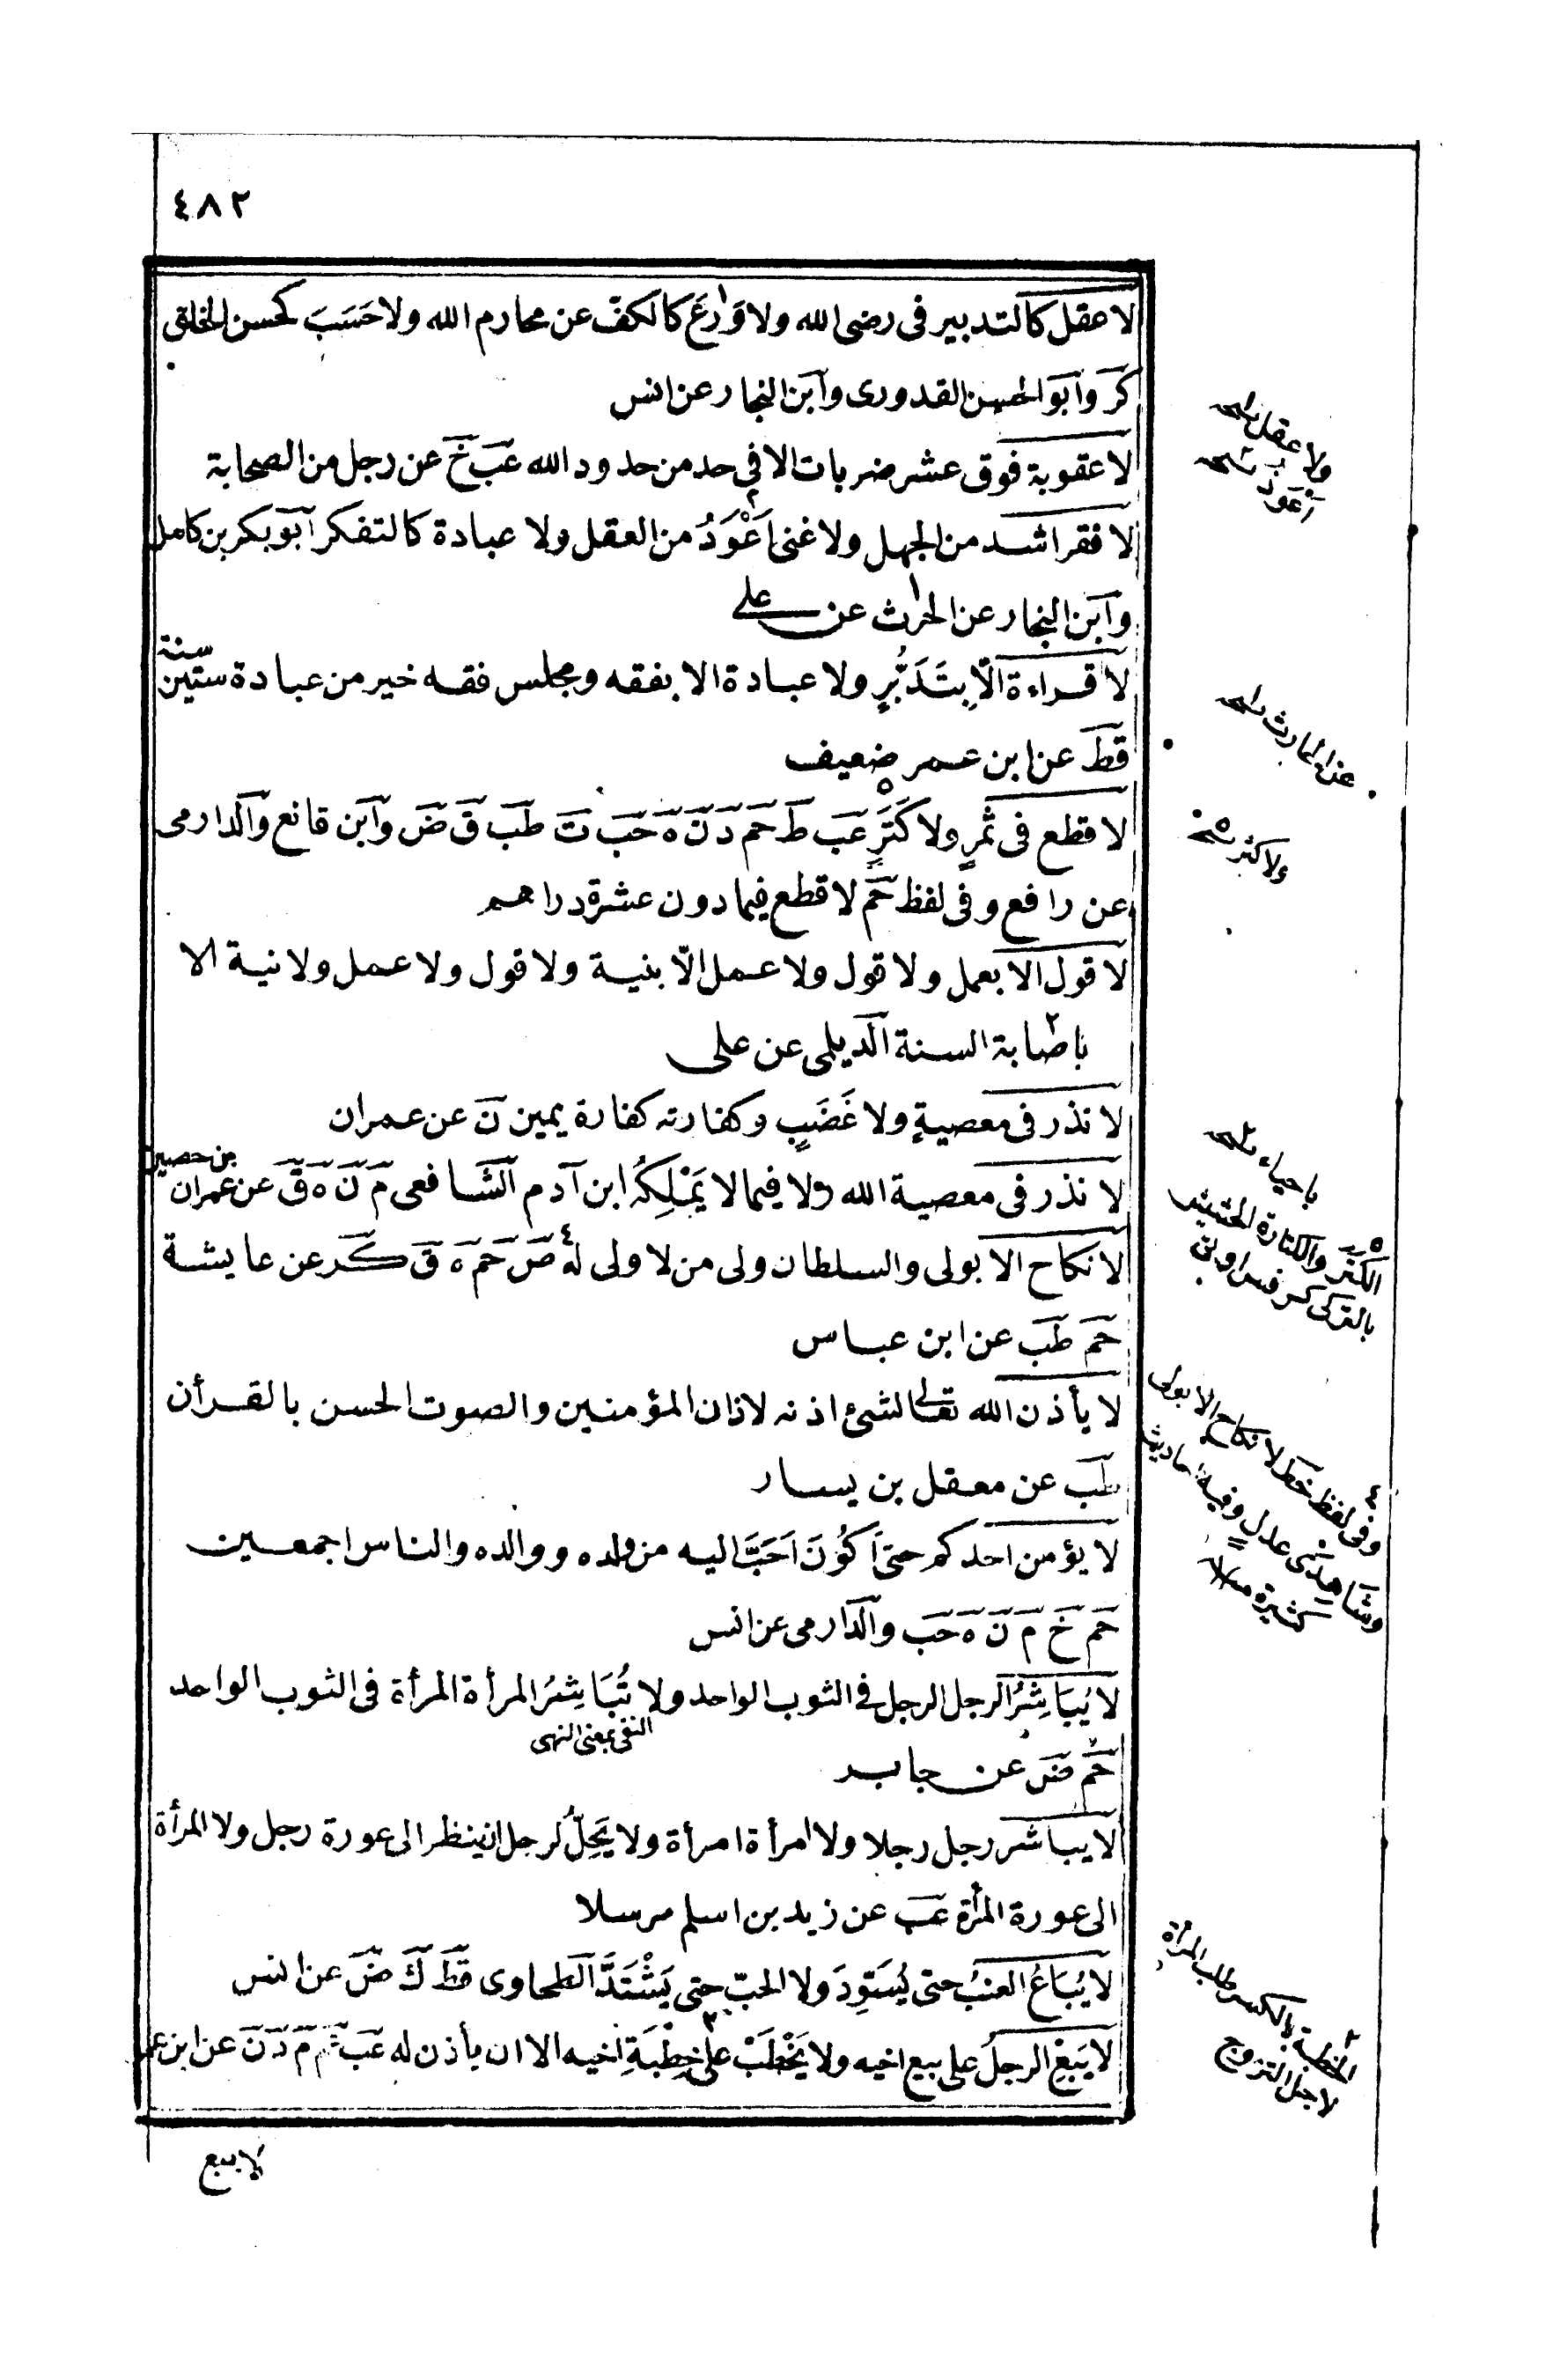 ٤٨٢
لا عقل كالتدبير فى رضى الله ولا وَرَعَ كالكفّ عن محارم الله ولا حَسَبَ كحسن الخلق
كر وابو الحسن القدورى وابن النجار عن انس
لا عقوبة فوق عشر ضربات الا فى حد من حدود الله عب خ عن رجل من الصحابة
لا فقر اشد من الجهل ولا غنى اَعْوَدُ من العقل ولا عبادة كالتفكر ابو بكر بن كامل
وابن النجار عن الحرث عن على
لا قراءة الّا بِتَدَبُّرٍ ولا عبادة الا بفقه ومجلس فقه خير من عبادة ستين سنة
قط عن ابن عمر ضعيف
لا قطع فى ثَمَرٍ ولا كَثَرٍ عب ط حم د ن ه حب ت طب ق ض وابن قانع والدارمى
عن رافع وفى لفظ حم لا قطع فيما دون عشرة دراهم
لا قول الا بعمل ولا قول ولا عمل الّا بنية ولا قول ولا عمل ولا نية الا
باصابة السنة الديلمى عن على
لا نذر فى معصيةٍ ولا غَضَبٍ وكفارته كفارة يمين ن عن عمران
لا نذر فى معصية الله ولا فيما لا يَمْلِكُه ابن آدم الشافعى م ن ه ق عن عمران بن حصين
لا نكاح الا بولى والسلطان ولى من لا ولى له ص حم ه ق كر عن عايشة
حم طب عن ابن عباس
لا يأذن الله تعالى لشئ اذنه لاذان المؤمنين والصوت الحسن بالقرأن
طب عن معقل بن يسار
لا يؤمن احدكم حتى اَكُونَ اَحَبَّ اليه من ولده ووالده والناس اجمعين
حم خ م ن ه حب والدارمى عن انس
لا يُبَاشِرُ الرجل الرجل فى الثوب الواحد ولا تُبَاشِرُ المرأة المرأة فى الثوب الواحد
النفى بمعنى النهى
حم ض عن جابر
لا يباشر رجل رجلا ولا امرأة امرأة ولا يَحِلُّ لرجل ان ينظر الى عورة رجل ولا المرأة
الى عورة المرأة عب عن زيد بن اسلم مرسلا
لا يُبَاعُ العنبُ حتى يُسَوِّدَ ولا الحبّ حتى يَشْتَدَّ الطحاوى قط ك ض عن انس
لا يَبِعِ الرجلُ على بيع اخيه ولا يَخْطُبْ على خِطْبَةِ اخيه الا ان يأذن له عب حم م د ن عن ابن عمر
لا يبيع
ولا عقل
أعود
عن الحارث
ولا كثر
باحياء
الكثر والكثارة
وفى لفظ خط لا نكاح الا بولى
وشاهدى عدل وفيه احاديث
كثيرة
الخطبة بالكسر طلب المرأة
لاجل التزوج